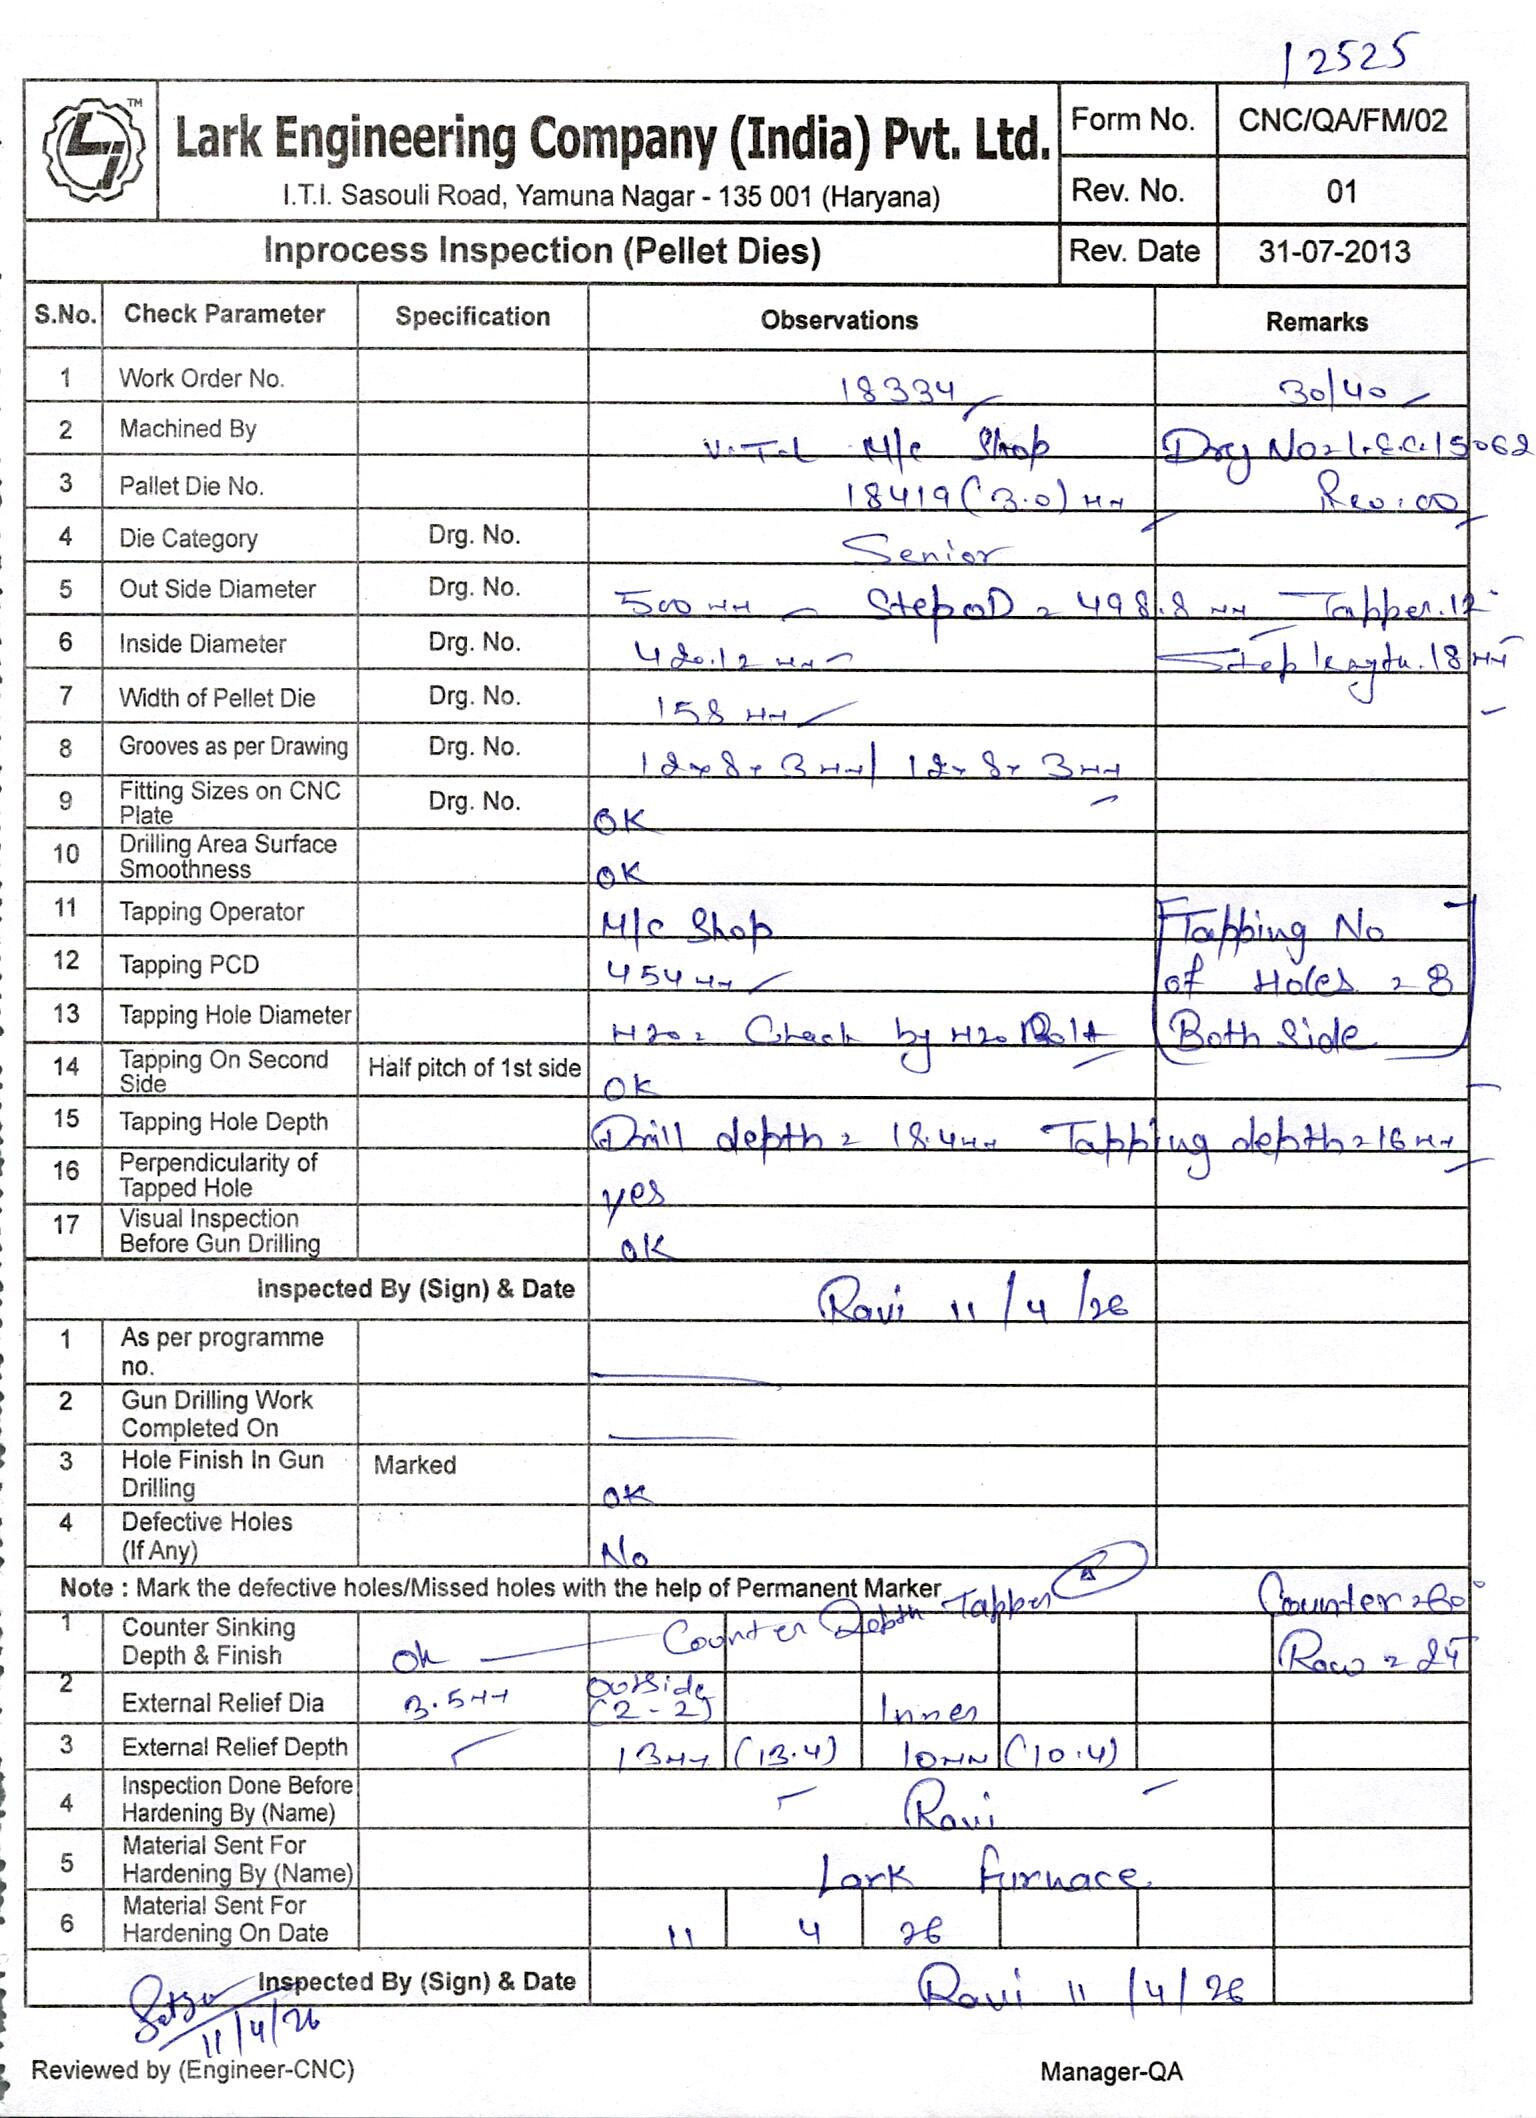 12525
TM
Lark Engineering Company (India) Pvt. Ltd.
I.T.I. Sasouli Road, Yamuna Nagar - 135 001 (Haryana)
Form No. CNC/QA/FM/02
Rev. No. 01
Inprocess Inspection (Pellet Dies) Rev. Date 31-07-2013
S.No. Check Parameter Specification Observations Remarks
1 Work Order No. 18334 30/40
2 Machined By M/c Shop
3 Pallet Die No. 18419 (3.0) Rev: 00
4 Die Category Drg. No. Senior
5 Out Side Diameter Drg. No. 500 mm Step OD = 498.8 mm Tapper.12
6 Inside Diameter Drg. No. 420.12 mm Step length. 18 mm
7 Width of Pellet Die Drg. No. 158 mm
8 Grooves as per Drawing Drg. No. 12x8x3mm/ 12x8x3mm
9 Fitting Sizes on CNC Plate Drg. No. OK
10 Drilling Area Surface Smoothness OK
11 Tapping Operator M/c Shop Tapping No
12 Tapping PCD 454 mm of Holes = 8
13 Tapping Hole Diameter M20 = Check by M20 Bolt Both Side
14 Tapping On Second Side Half pitch of 1st side OK
15 Tapping Hole Depth Drill depth = 18.4mm Tapping depth = 16mm
16 Perpendicularity of Tapped Hole yes
17 Visual Inspection Before Gun Drilling OK
Inspected By (Sign) & Date Ravi 11/4/26
1 As per programme no.
2 Gun Drilling Work Completed On
3 Hole Finish In Gun Drilling Marked OK
4 Defective Holes (If Any) No
Note : Mark the defective holes/Missed holes with the help of Permanent Marker
1 Counter Sinking Depth & Finish Ok Counter Depth Tapper Counter = 60
Row = 24
2 External Relief Dia 3.5mm Outside (2-2) Inner
3 External Relief Depth 13mm (13.4) 10mm (10.4)
4 Inspection Done Before Hardening By (Name) Ravi
5 Material Sent For Hardening By (Name) Lark Furnace
6 Material Sent For Hardening On Date 11 4 26
Inspected By (Sign) & Date Ravi 11/4/26
11/4/26
Reviewed by (Engineer-CNC) Manager-QA